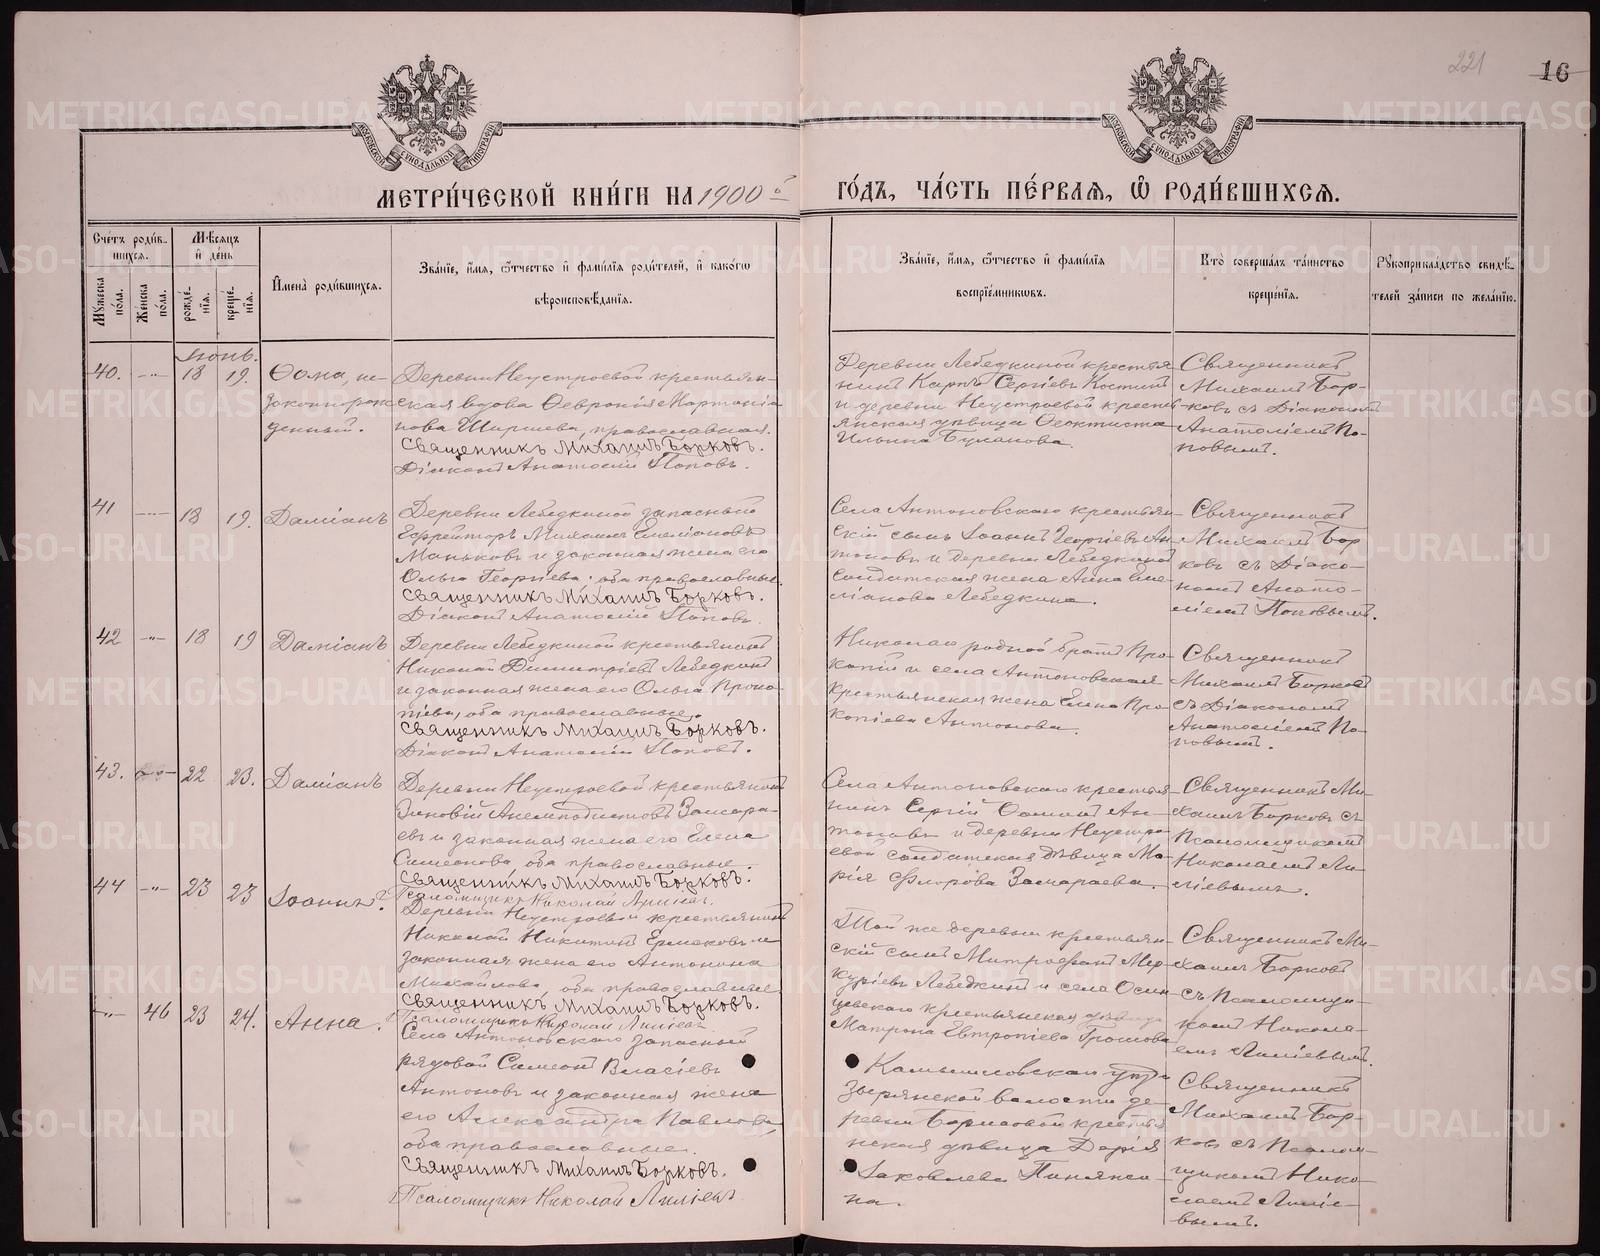 221
16
МОСКОВСКОЙ СУНОДАЛЬНОЙ ТИПОГРАФІИ
МОСКОВСКОЙ СУНОДАЛЬНОЙ ТИПОГРАФІИ
МЕТРИ́ЧЕСКОЙ КНИ́ГИ НА 1900й
ГО́ДЪ, ЧА́СТЬ ПЕ́РВАЯ, Ѽ РОДИ́ВШИХСЯ.
Сче́тъ роди́в-
шихся.
Мѣ́сяцъ
и҆ де́нь
Му́жеска по́ла.
Же́нска по́ла.
рожде́-нїя.
креще́-нїя.
И҆мена̀ роди́вшихся.
Зва́нїе, и҆́мя, ѻ҆́тчество и҆ фамѝлїя роди́телей, и҆ како́гѡ
вѣроисповѣ́данїя.
Зва́нїе, и҆́мя, ѻ҆́тчество и҆ фамѝлїя
воспрїе́мниковъ.
Кто̀ соверша́лъ та́инство
креще́нїя.
Рꙋкоприкла́дство свидѣ́-
телей за́писи по жела́нїю.
Іюнь.
40. -"- 18 19. Ѳома, не-
законнорож-
денный.
Деревни Неустроевой крестьян-
ская вдова Ѳевронія Мартині-
нова Ширшева, православная.
Священникъ Михаилъ Борковъ.
Діаконъ Анатолій Поповъ.
Деревни Лебедкиной крестья-
нинъ Карпъ Сергіевъ Костинъ
и деревни Неустроевой кресть-
янская дѣвица Ѳеоктиста
Ильина Буланова.
Священникъ
Михаилъ Бор-
ковъ съ Діакономъ
Анатоліемъ По-
повымъ.
41 -"- 18 19. Даміанъ
Деревни Лебедкиной запасный
Ефрейторъ Михаилъ Емеліановъ
Маньковъ и законная жена его
Ольга Георгіева, оба православные.
Священникъ Михаилъ Борковъ.
Діаконъ Анатолій Поповъ.
Села Антоновскаго крестьян-
скій сынъ Іоаннъ Георгіевъ Ан-
тоновъ и деревни Лебедкиной
солдатская жена Анна Еме-
ліанова Лебедкина.
Священникъ
Михаилъ Бор-
ковъ съ Діако-
номъ Анато-
ліемъ Поповымъ.
42 -"- 18 19 Даміанъ
Деревни Лебедкиной крестьянинъ
Николай Димитріевъ Лебедкинъ
и законная жена его Ольга Проко-
піева, оба православные.
Священникъ Михаилъ Борковъ.
Діаконъ Анатолій Поповъ.
Николаю родной братъ Про-
копій и села Антоновскаго
крестьянская жена Елена Про-
копіева Антонова.
Священникъ
Михаилъ Борковъ
съ Діакономъ
Анатоліемъ По-
повымъ.
43. -"- 22 23. Даміанъ
Деревни Неустроевой крестьянинъ
Зиновій Анемподистовъ Замара-
евъ и законная жена его Елена
Симеонова, оба православные.
Священникъ Михаилъ Борковъ.
Псаломщикъ Николай Лиліевъ.
Села Антоновскаго крестья-
нинъ Сергій Ѳоминъ Ан-
тоновъ и деревни Неустро-
евой солдатская дѣвица Ма-
рія Флорова Замараева.
Священникъ Ми-
хаилъ Борковъ съ
Псаломщикомъ
Николаемъ Ли-
ліевымъ.
44 -"- 23 23 Іоаннъ.
Деревни Неустроевой крестьянинъ
Николай Никитинъ Ермаковъ и
законная жена его Антонина
Михайлова, оба православные.
Священникъ Михаилъ Борковъ.
Псаломщикъ Николай Лиліевъ.
Той же деревни крестьян-
скій сынъ Митрофанъ Мер-
куріевъ Лебедкинъ и села Осин-
цевскаго крестьянская дѣвица
Матрона Евтропіева Грошова
Священникъ Ми-
хаилъ Борковъ
съ Псаломщи-
комъ Никола-
емъ Лиліевымъ.
-"- 46 23 24. Анна.
Села Антоновскаго запасный
рядовой Симеонъ Власіевъ
Антоновъ и законная жена
его Александра Павлова,
оба православные.
Священникъ Михаилъ Борковъ.
Псаломщикъ Николай Лиліевъ.
Камышловскаго уѣзда
Зырянской волости де-
ревни крестья-
нская дѣвица Дарія
Іаковлева Пинянки-
на.
Священникъ
Михаилъ Бор-
ковъ съ Псалом-
щикомъ Нико-
лаемъ Лиліе-
вымъ.
METRIKI.GASO-URAL.RU